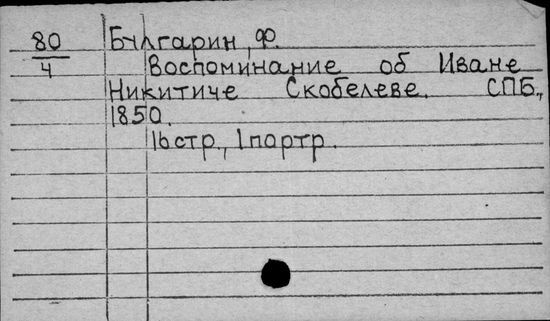 80
4
Булгарин, Ф.
Воспоминание об Иване
Никитиче Скобелеве. СПБ.,
1850.
16стр., 1портр.